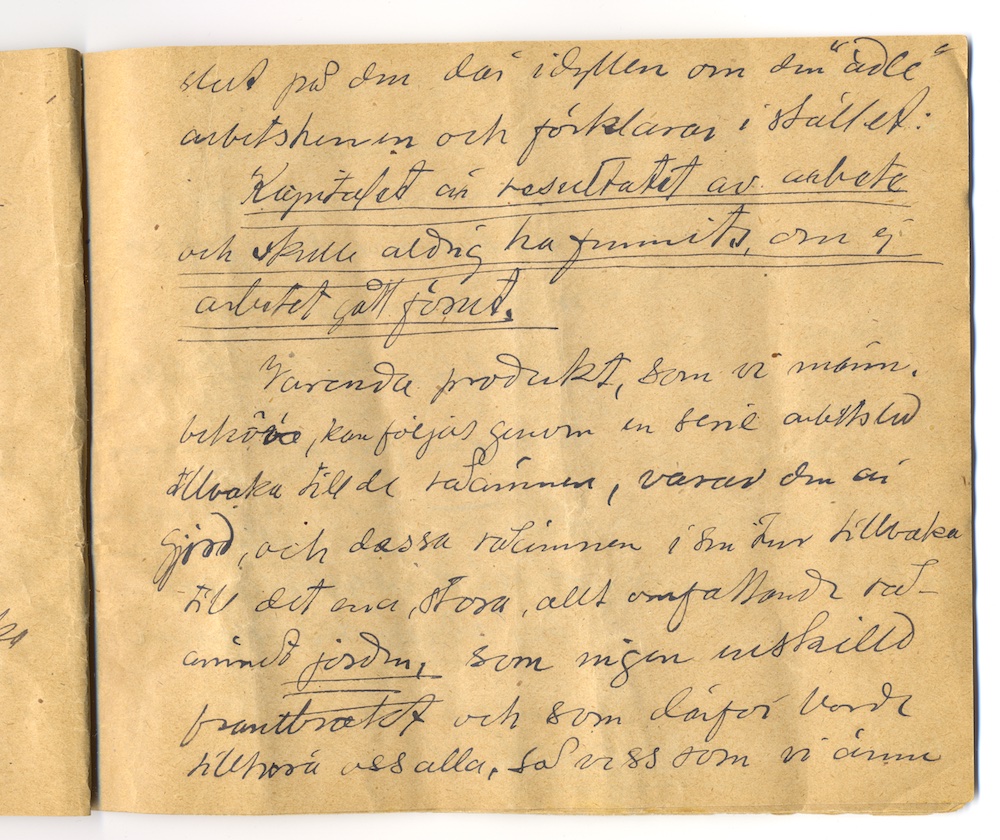 slut på den där idyllen om den "ädle"
arbetsherren och förklarar i stället:
Kapitalet är resultatet av arbete
och skulle aldrig ha funnits, om ej
arbetet gått förut.
Varenda produkt, som vi männ.
behöva, kan följas genom en serie arbetsled
tillbaka till de råämnen, varav den är
gjord, och dessa råämnen i sin tur tillbaka
till det ena, stora, allt omfattande rå-
ämnet jorden, som ingen enskilld
frambrakt och som därför borde
tillhöra oss alla, så visst som vi ännu